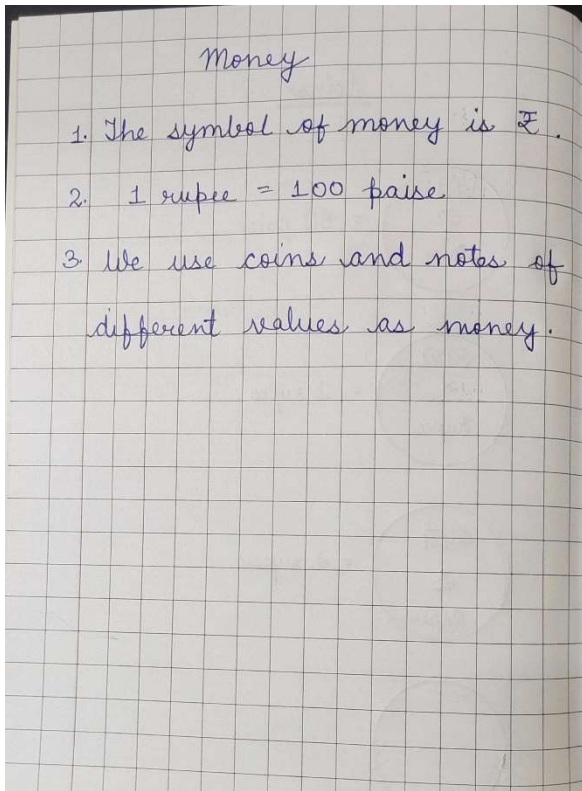 Money
1. The symbol of money is ₹.
2. 1 rupee = 100 paise
3. We use coins and notes of
different values as money.